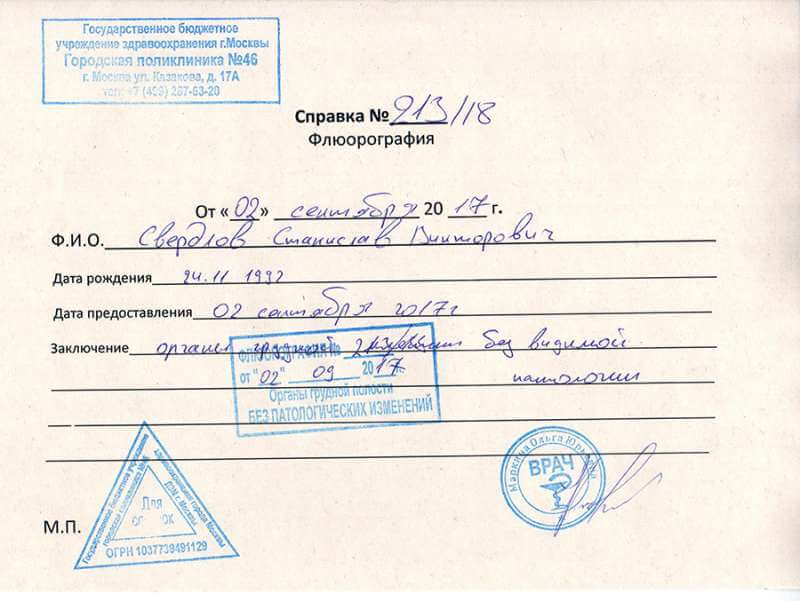 Государственное бюджетное
учреждение здравоохранения г.Москвы
Городская поликлиника №46
г. Москва ул. Казакова, д. 17А
тел: +7 (499) 267-63-20
Справка № 213/18
Флюорография
От «02» сентября 20 17 г.
Ф.И.О. Свердлов Станислав Викторович
Дата рождения 24.11 1992
Дата предоставления 02 сентября 2017г
Заключение органы грудной без видимой
патологии
ФЛЮОРОГРАФИЯ №
от "02" 09 20 17
Органы грудной полости
БЕЗ ПАТОЛОГИЧЕСКИХ ИЗМЕНЕНИЙ
М.П.
Государственное бюджетное учреждение
здравоохранения города Москвы
городская поликлиника №46
ДЗМ г. Москвы
Для
ОГРН 1037739491129
Маркина Ольга Юрьевна
ВРАЧ